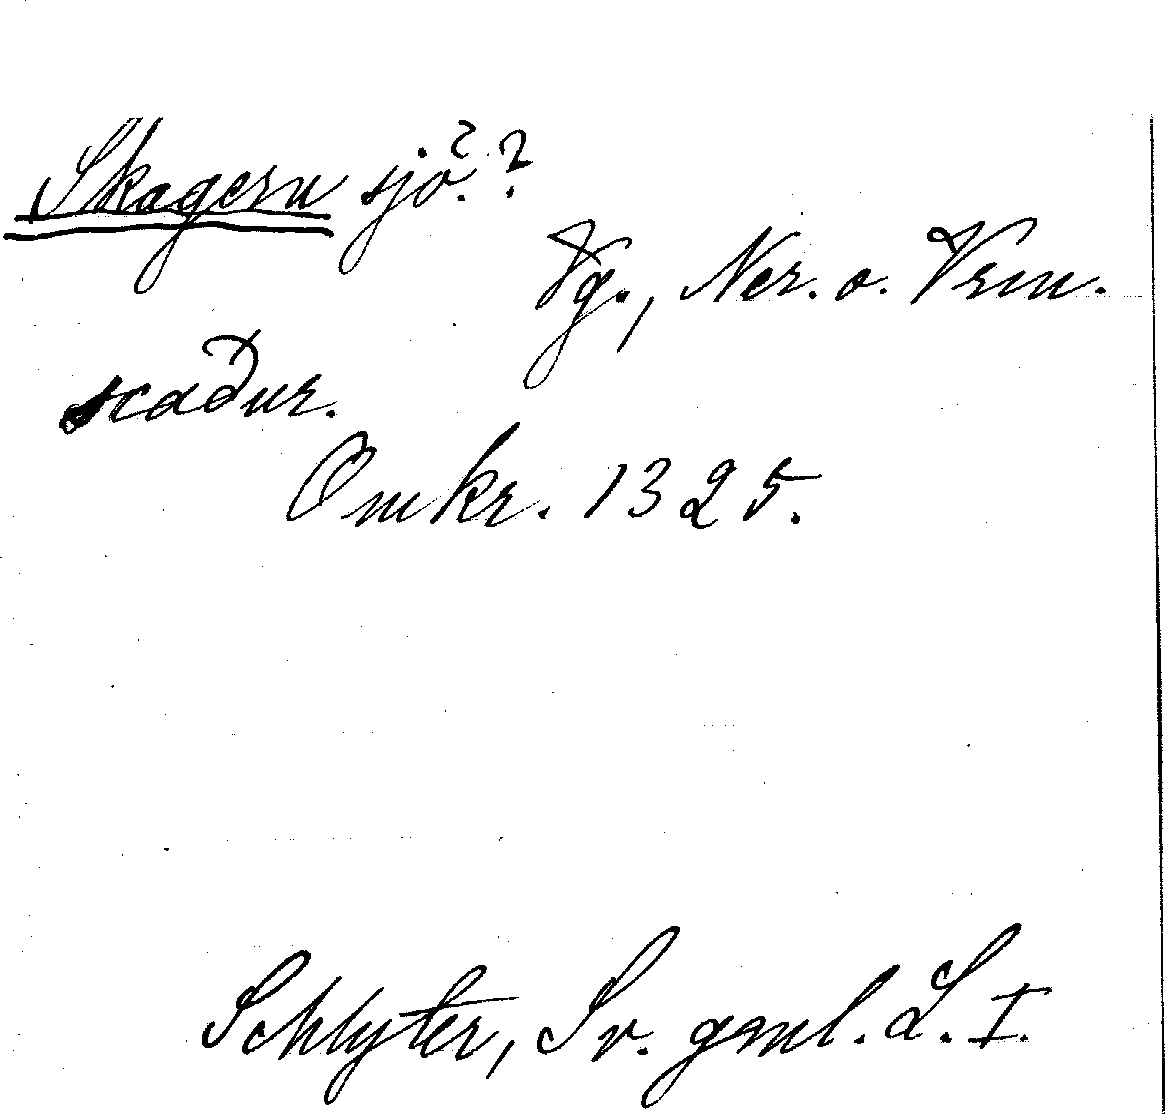 Skagern sjö. ?
Vg., Ner. o. Vrm.
scaður.
Omkr. 1325.
Schlyter, Sv. gml. L. I.